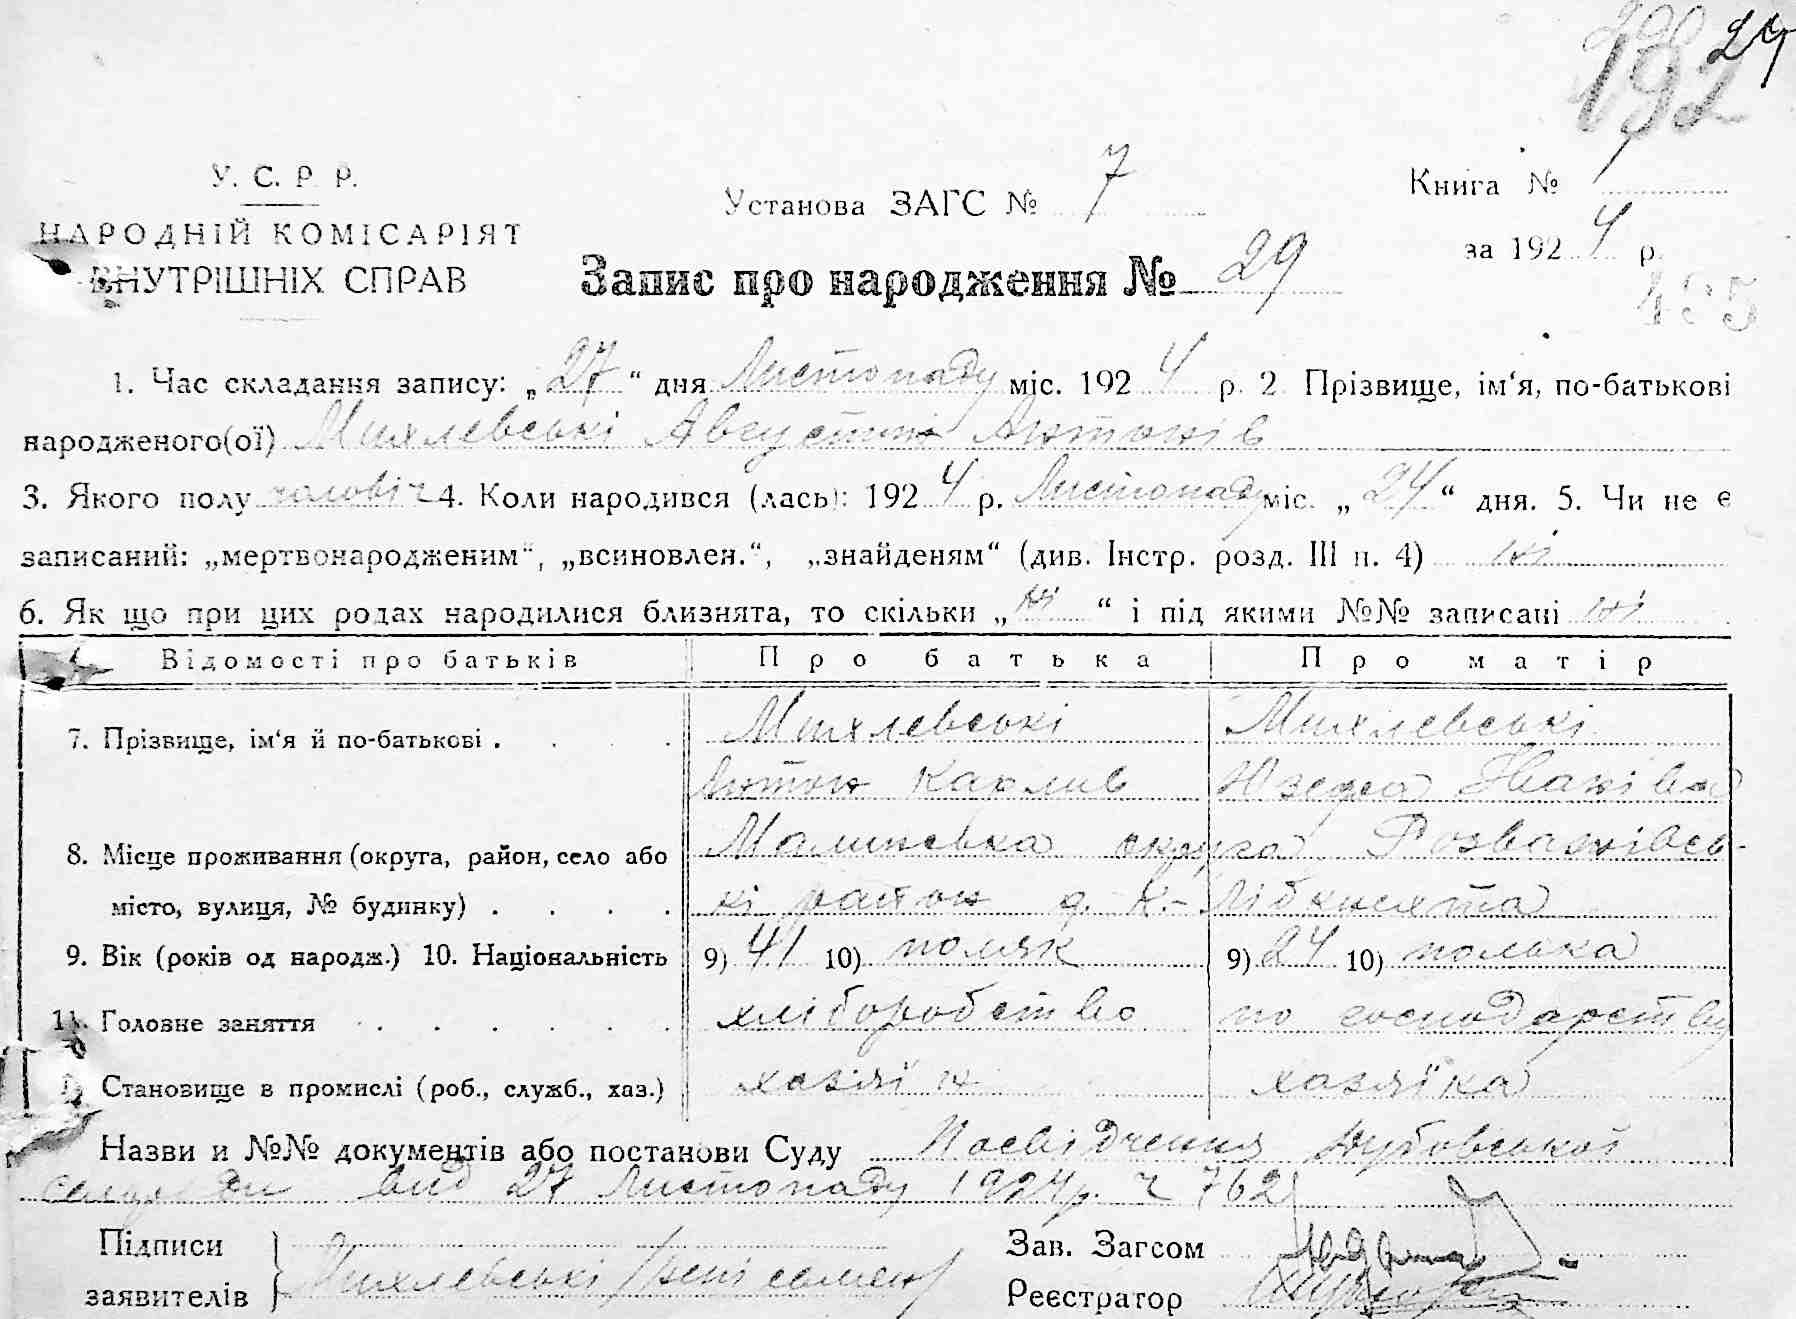 24
192
У. С. Р. Р.
НАРОДНІЙ КОМІСАРІЯТ
ВНУТРІШНІХ СПРАВ
Установа ЗАГС № 7
Книга №
за 1924 р.
Запис про народження № 29
435
1. Час складання запису: „27“ дня Листопаду міс. 1924 р. 2. Прізвище, ім‘я, по-батькові
народженого(ої) Михлевські Августин Антонів
3. Якого полу чоловіч 4. Коли народився (лась): 1924 р. Листопаду міс. „24“ дня. 5. Чи не є
записаний: „мертвонародженим“, „всиновлен.“, „знайденям“ (див. Інстр. розд. III п. 4) ні
6. Як що при цих родах народилися близнята, то скільки „ні“ і під якими №№ записані ні
Відомості про батьків Про батька Про матір
7. Прізвище, ім‘я й по-батькові . . . . Михлевські Михлевські
Антон Карлив Юзефа Іванівна
8. Місце проживання (округа, район, село або Малинська округа Розважівсь-
місто, вулиця, № будинку) . . . . кі район д. К.-Лібкнехта
9. Вік (років од народж.) 10. Національність 9) 41 10) поляк 9) 24 10) полька
11. Головне заняття . . . . . . хлібороbство по господарству
Становище в промислі (роб., служб., хаз.) хазяїн хазяїка
Назви и №№ документів або постанови Суду Посвідчення
вид 27 Листопаду 1924р. ч 762
Підписи
заявителів Михлевські
Зав. Загсом
Реєстратор